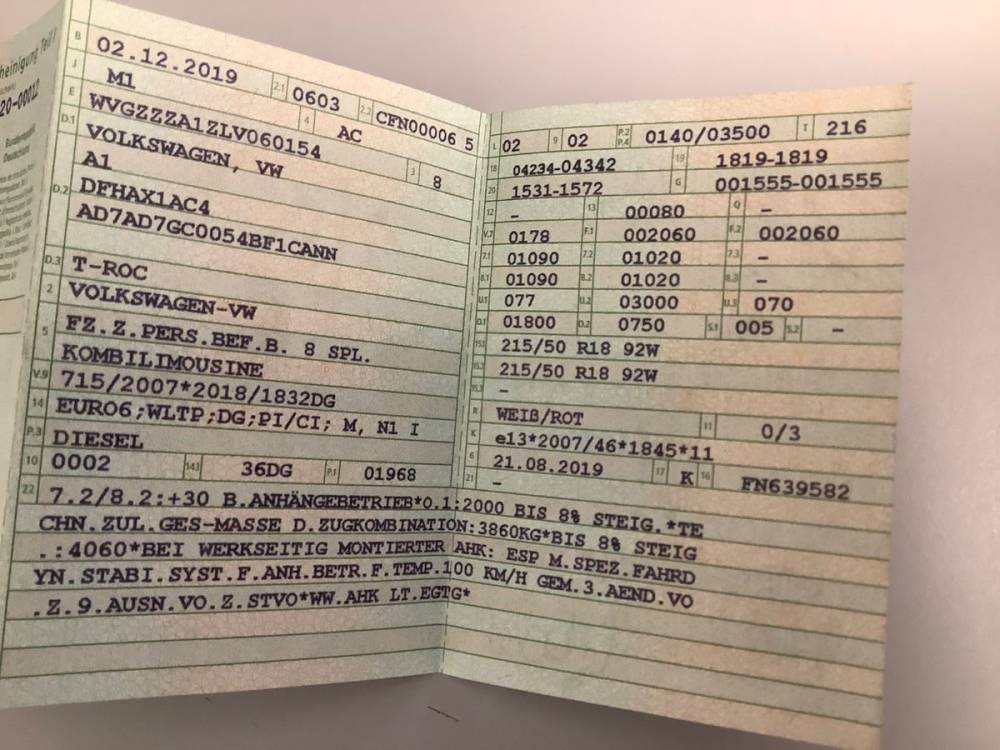 heinigung Teil I
20-00012
Bundesrepublik
Deutschland
B 02.12.2019 2.1 0603 2.2 CFN00006 5
J M1 4 AC
E WVGZZZA1ZLV060154 3 8
D.1 VOLKSWAGEN, VW
A1
D.2 DFHAX1AC4
AD7AD7GC0054BF1CANN
D.3 T-ROC
2 VOLKSWAGEN-VW
5 FZ.Z.PERS.BEF.B. 8 SPL.
KOMBILIMOUSINE
V.9 715/2007*2018/1832DG
14 EURO6;WLTP;DG;PI/CI; M, N1 I
P.3 DIESEL
10 0002 14.1 36DG P.1 01968
L 02 9 02 P.2 P.4 0140/03500 T 216
18 04234-04342 19 1819-1819
20 1531-1572 G 001555-001555
12 - 13 00080 Q -
V.7 0178 F.1 002060 F.2 002060
7.1 01090 7.2 01020 7.3 -
8.1 01090 8.2 01020 8.3 -
U.1 077 U.2 03000 U.3 070
O.1 01800 O.2 0750 S.1 005 S.2 -
15.1 215/50 R18 92W
15.2 215/50 R18 92W
15.3 -
R WEIß/ROT 11 0/3
K e13*2007/46*1845*11
6 21.08.2019 17 K 16 FN639582
21 -
22 7.2/8.2:+30 B.ANHÄNGEBETRIEB*O.1:2000 BIS 8% STEIG.*TE
CHN.ZUL.GES-MASSE D.ZUGKOMBINATION:3860KG*BIS 8% STEIG
.:4060*BEI WERKSEITIG MONTIERTER AHK: ESP M.SPEZ.FAHRD
YN.STABI.SYST.F.ANH.BETR.F.TEMP.100 KM/H GEM.3.AEND.VO
.Z.9.AUSN.VO.Z.STVO*WW.AHK LT.EGTG*